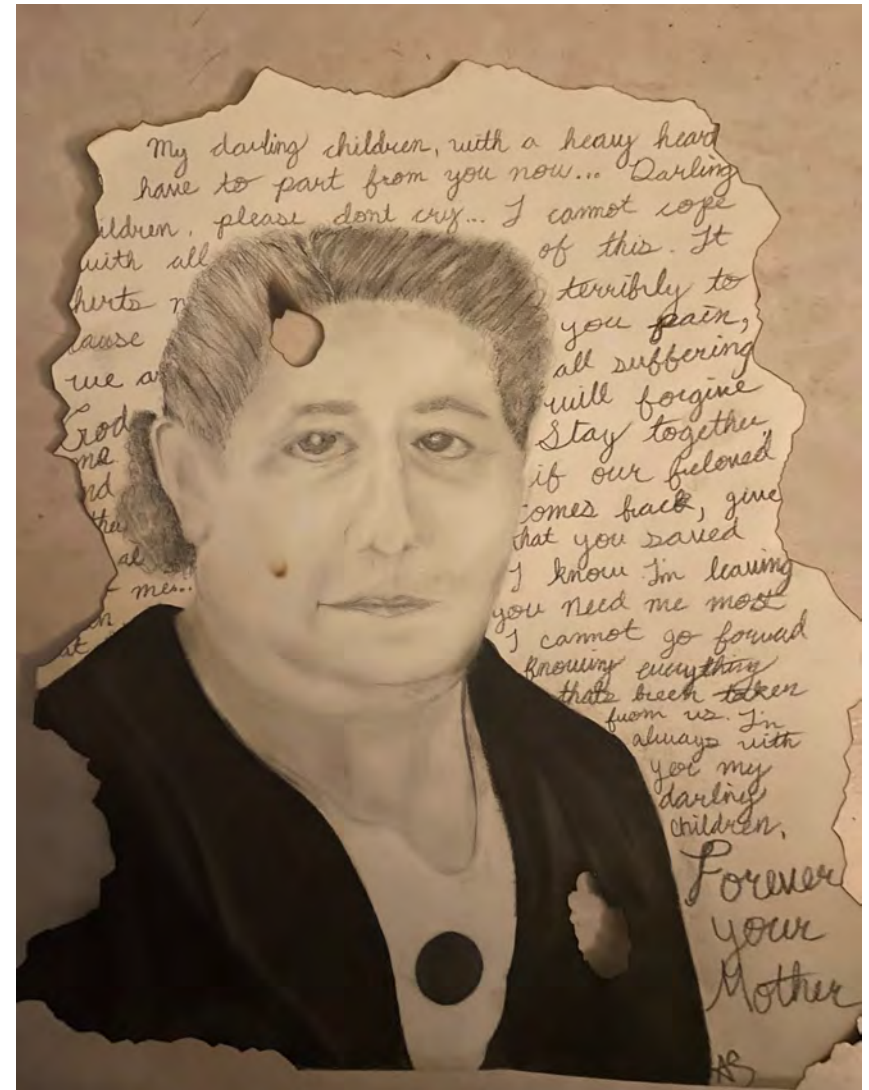 My darling children, with a heavy heart
have to part from you now... Darling
ildren, please dont cry... I cannot cope
with all of this. It
hurts terribly to
cause you pain,
we a all suffering
God will forgive
me. Stay together,
nd if our beloved
the comes back, give
al that you saved
me... I know Im leaving
you need me most
at I cannot go forward
knowing everything
thats been taken
from us. Im
always with
you my
darling
children,
Forever
your
Mother
AS